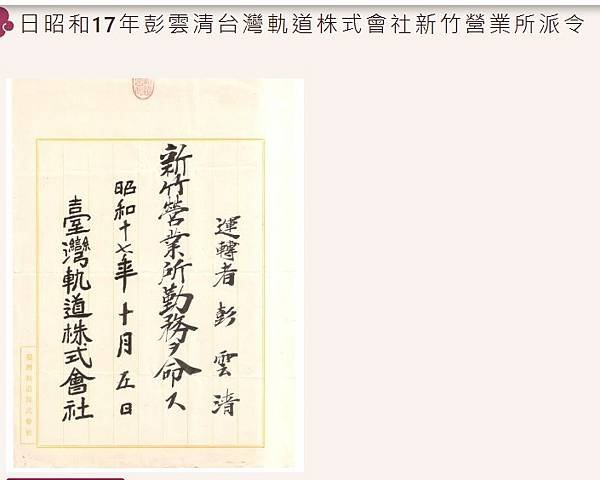 日昭和17年彭雲清台灣軌道株式會社新竹營業所派令
運轉者 彭雲清
新竹營業所勤務ヲ命ス
昭和十七年十月五日
臺灣軌道株式會社
臺灣軌道株式會社